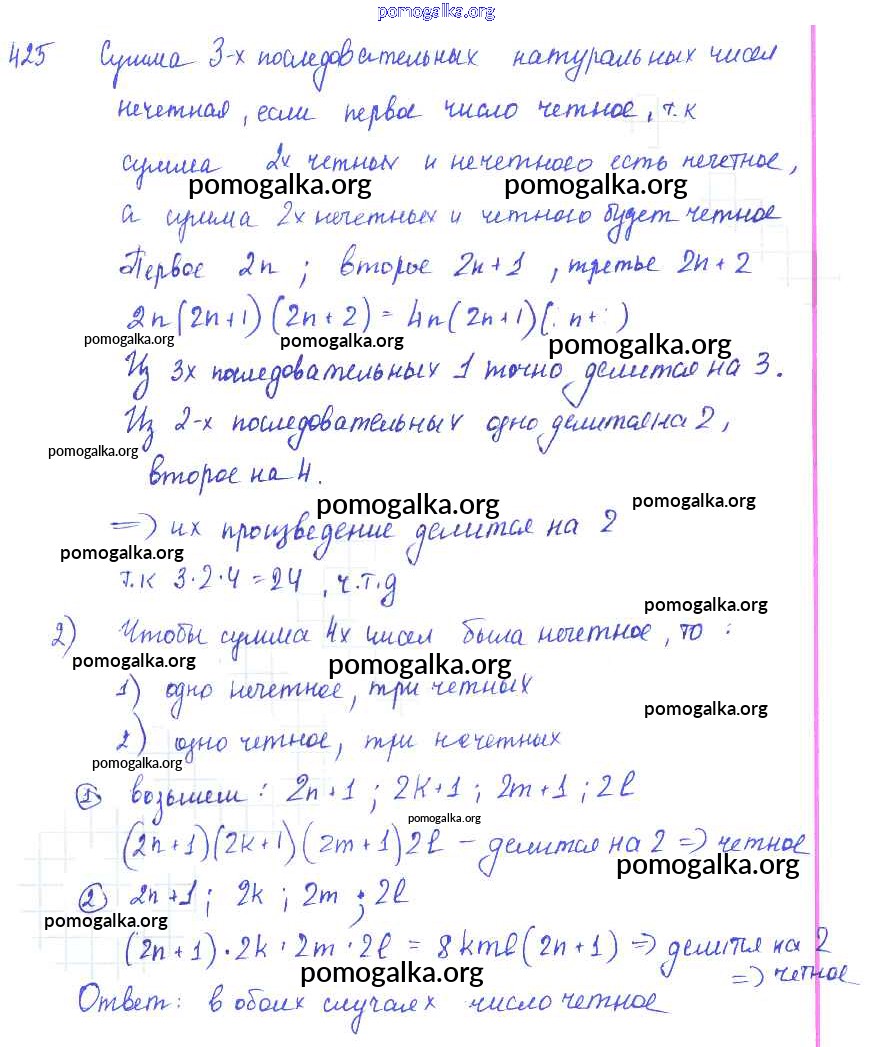 pomogalka.org
425 Сумма 3-х последовательных натуральных чисел
нечетная, если первое число четное, т.к
сумма 2х четных и нечетного есть нечетное,
pomogalka.org pomogalka.org
а сумма 2х нечетных и четного будет четное
Первое 2n ; второе 2n+1 , третье 2n+2
2n(2n+1)(2n+2) = 4n(2n+1)( n+ )
pomogalka.org pomogalka.org pomogalka.org
Из 3х последовательных 1 точно делится на 3.
Из 2-х последовательных одно делится на 2,
pomogalka.org
второе на 4.
pomogalka.org pomogalka.org
=> их произведение делится на 2
pomogalka.org
т.к 3·2·4=24 , ч.т.д
pomogalka.org
2) Чтобы сумма 4х чисел была нечетное, то :
pomogalka.org pomogalka.org
1) одно нечетное, три четных
pomogalka.org
2) одно четное, три нечетных
pomogalka.org
① возьмем : 2n+1 ; 2k+1 ; 2m+1 ; 2l
pomogalka.org
(2n+1)(2k+1)(2m+1)2l – делится на 2 => четное
pomogalka.org
② 2n+1 ; 2k ; 2m ; 2l
pomogalka.org
(2n+1)·2k·2m·2l = 8kml(2n+1) => делится на 2
=> четное
pomogalka.org
Ответ: в обоих случаях число четное